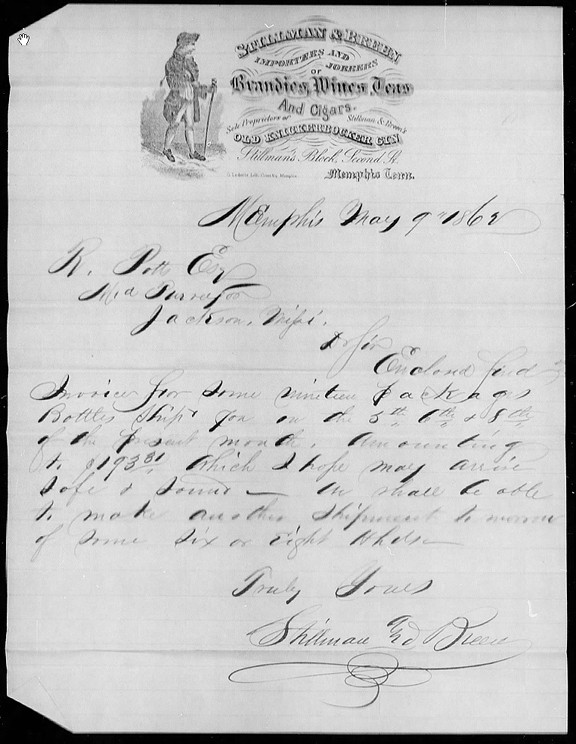 STILLMAN & BREEN
IMPORTERS AND
JOBBERS
OF
Brandies, Wines, Teas
And Cigars.
Sole Proprietors of Stillman & Breen's
OLD KNICKERBOCKER GIN
Stillman's Block, Second St.
Memphis Tenn.
Memphis May 9th 1862
R. Potts Esq
Med Purveyor
Jackson, Missi.
Dr Sir
Enclosed find
Invoice for some nineteen packages
Bottles Shipd you on the 5th 6th & 8th
of the present month, amounting
to $193 81 which I hope may arrive
Safe & Sound — We shall be able
to make another Shipment tomorrow
of some six or eight
Truly Yours
Stillman and Breen